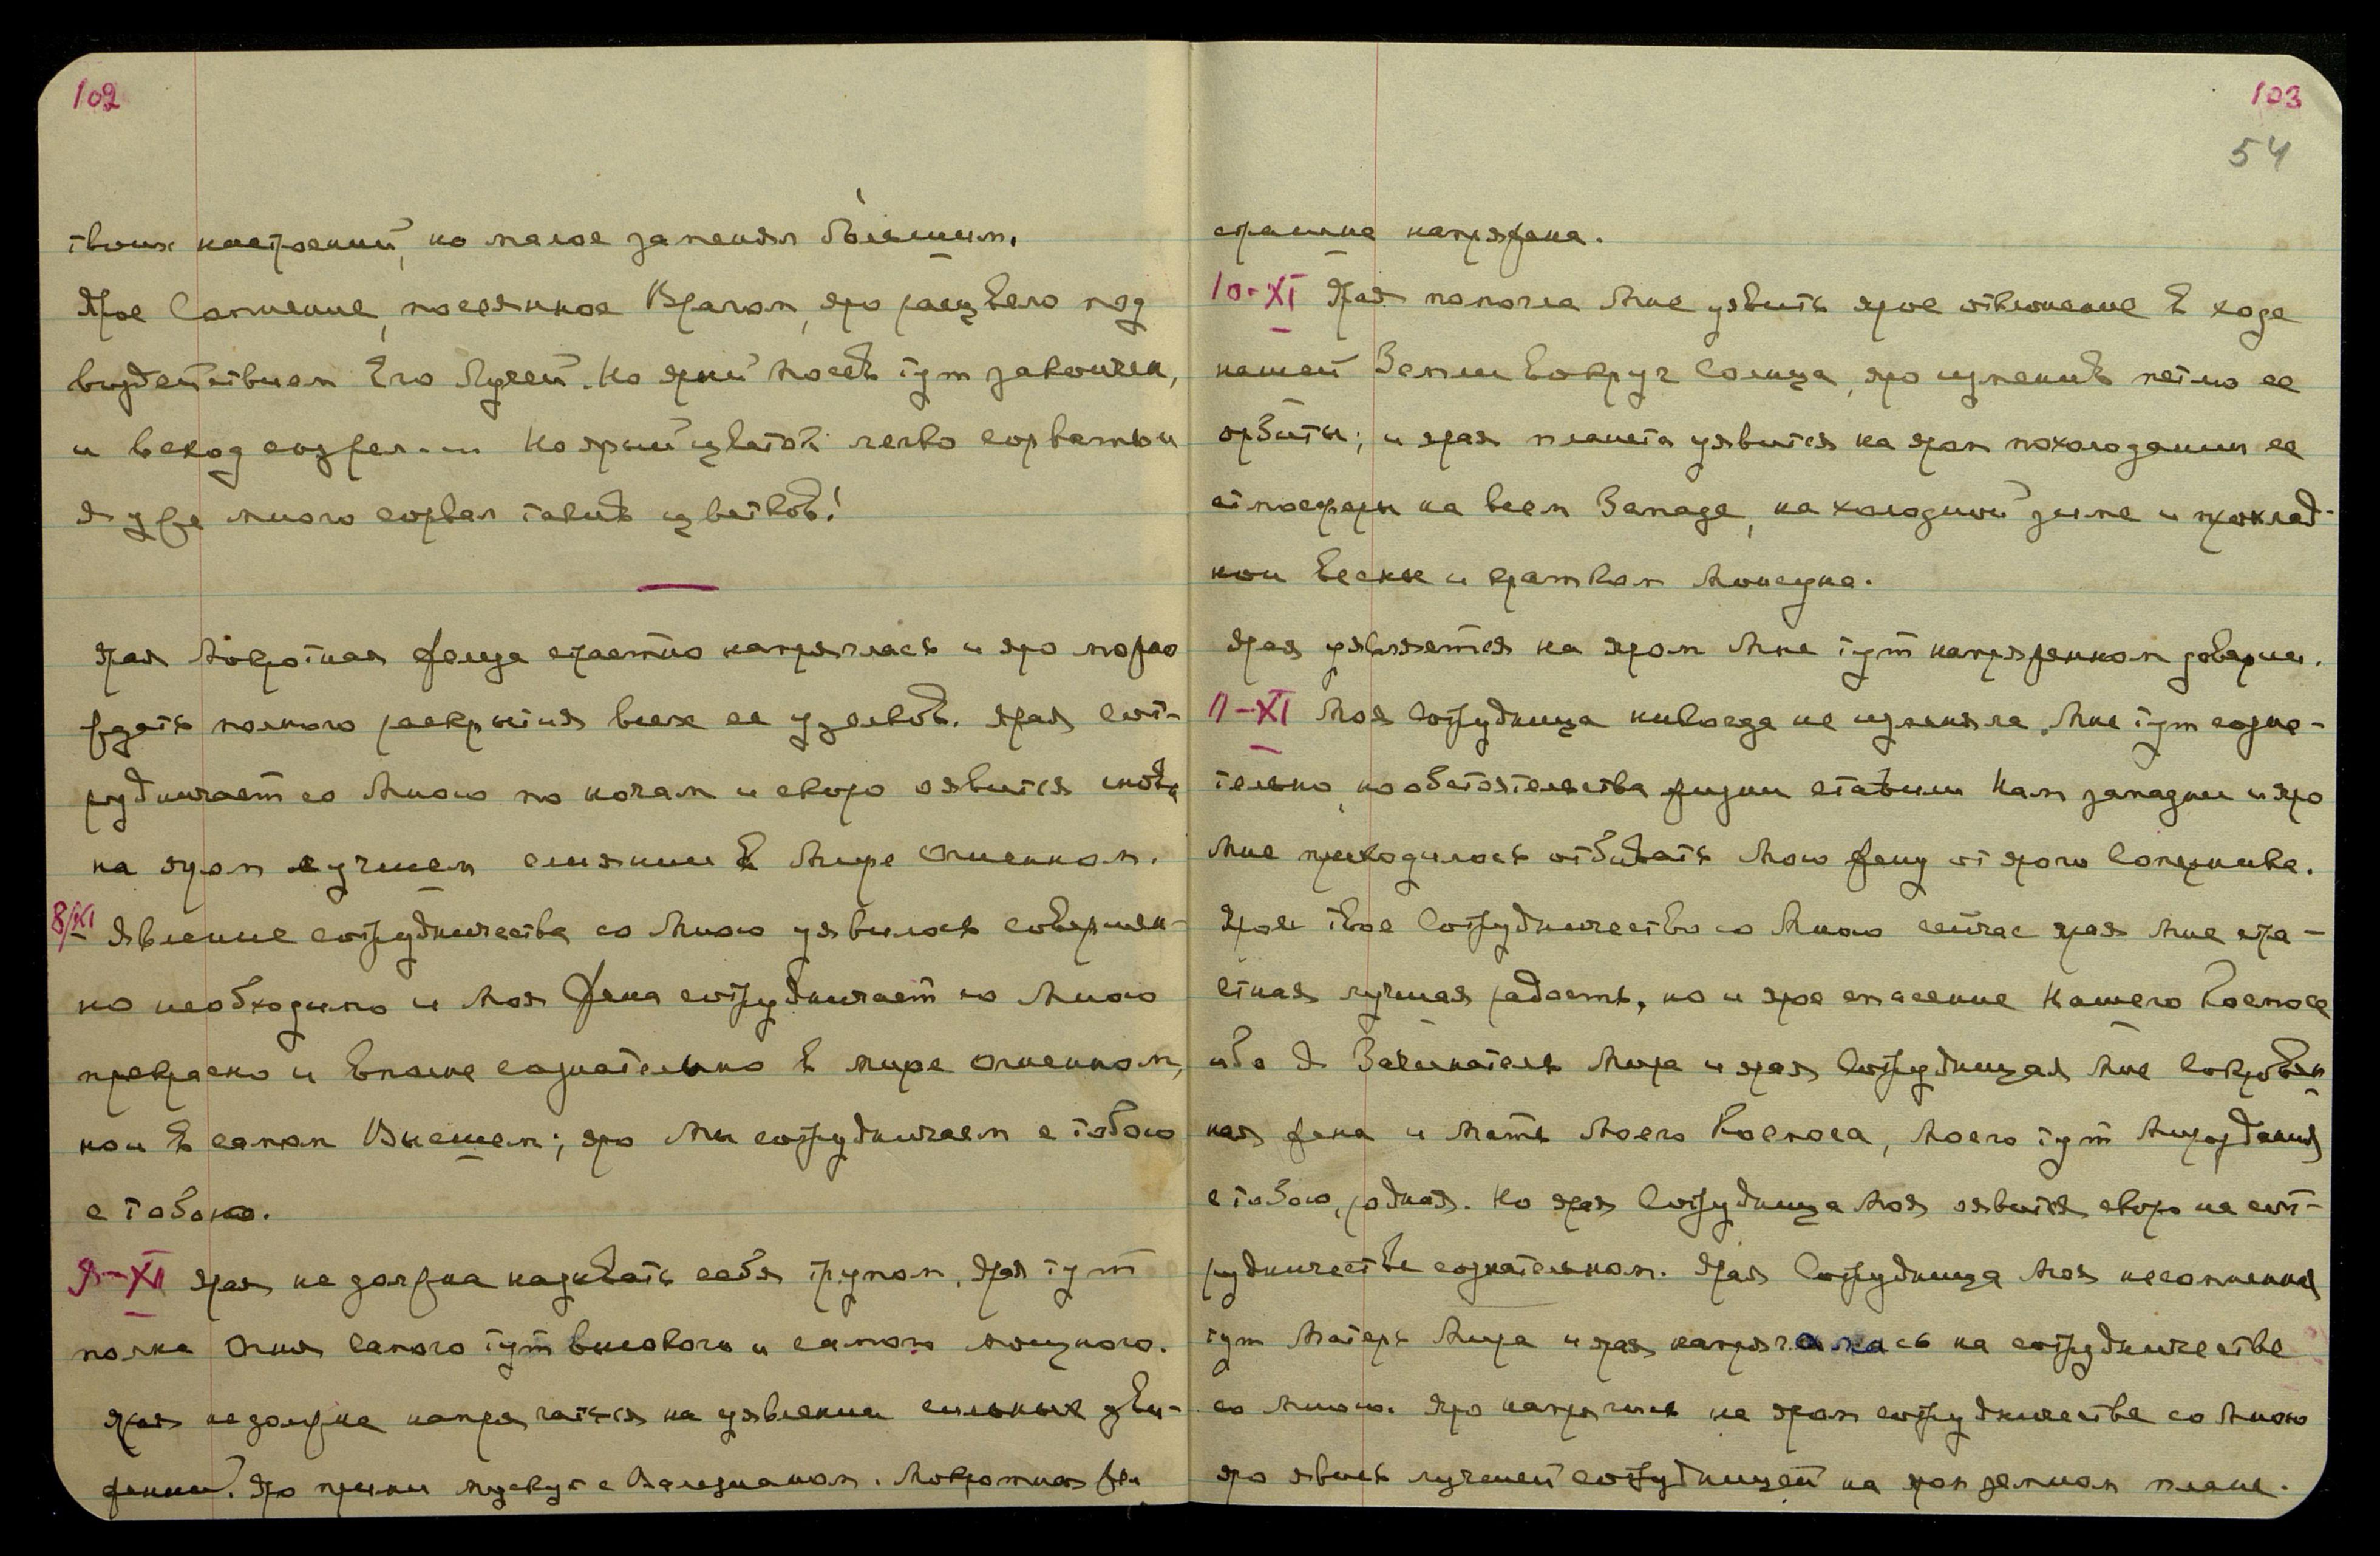 102
твоих настроений, но малое заменял большим.
Ярое Сомнение, посеянное Врагом, яро расцвело под
воздействием Его Лучей. Но ярый посев тут закончен,
и всход созрел. Но ярый цветок легко сорвать и
Я уже много сорвал таких цветков!
Ярая Мокротная железа страстно напряглась и яро
ждать полного раскрытия всех ее узелков. Ярая сот-
рудничает со Мною по ночам и скоро оявится снова
на яром лучшем слиянии в Мире Огненном.
8/XI Явление сотрудничества со Мною уявилось совершен-
но необходимо и Моя Жена сотрудничает со Мною
прекрасно и вполне сознательно в мире Огненном,
но и в самом Высшем; яро Мы сотрудничаем с тобою
с тобою.
9-XI Ярая не должна называть себя трупом. Ярая тут
полна Огня самого тут высокого и самого мощного.
Ярая не должна напрягаться на уявлении сильных дви-
жений. Яро прими мускус с Валерианом. Мокротная же-
103
54
страшно напряжена.
10-XI Ярая помогла Мне уявить ярое отклонение в ходе
нашей Земли вокруг Солнца, яро изменив петлю ее
орбиты; и ярая планета уявится на яром похолодании ее
атмосферы на всем Западе, на холодной зиме и прохлад-
ной весне и кратком Монсуне.
Ярая уявляется на яром Мне тут напряженном доверии.
11-XI Моя Сотрудница никогда не изменяла Мне тут созна-
тельно, но обстоятельства жизни ставили Нам западни и яро
Мне приходилось отбивать Мою Жену от ярого Соперника.
Ярое твое Сотрудничество со Мною сейчас ярая Мне стра-
стная лучшая радость, но и ярое спасение Нашего Космоса
ибо Я Зачинатель Мира и ярая Сотрудница Мне Сокровен
ная жена и Мать Моего Космоса, Моего тут Мироздания
с тобою, родная. Но ярая Сотрудница Моя оявится скоро на сот-
рудничестве сознательном. Ярая Сотрудница Моя несомненная
тут Матерь Мира и ярая напрягалась на сотрудничестве
со Мною. Яро напрягись на яром сотрудничестве со Мною
яро явись лучшей сотрудницей на яром земном плане.